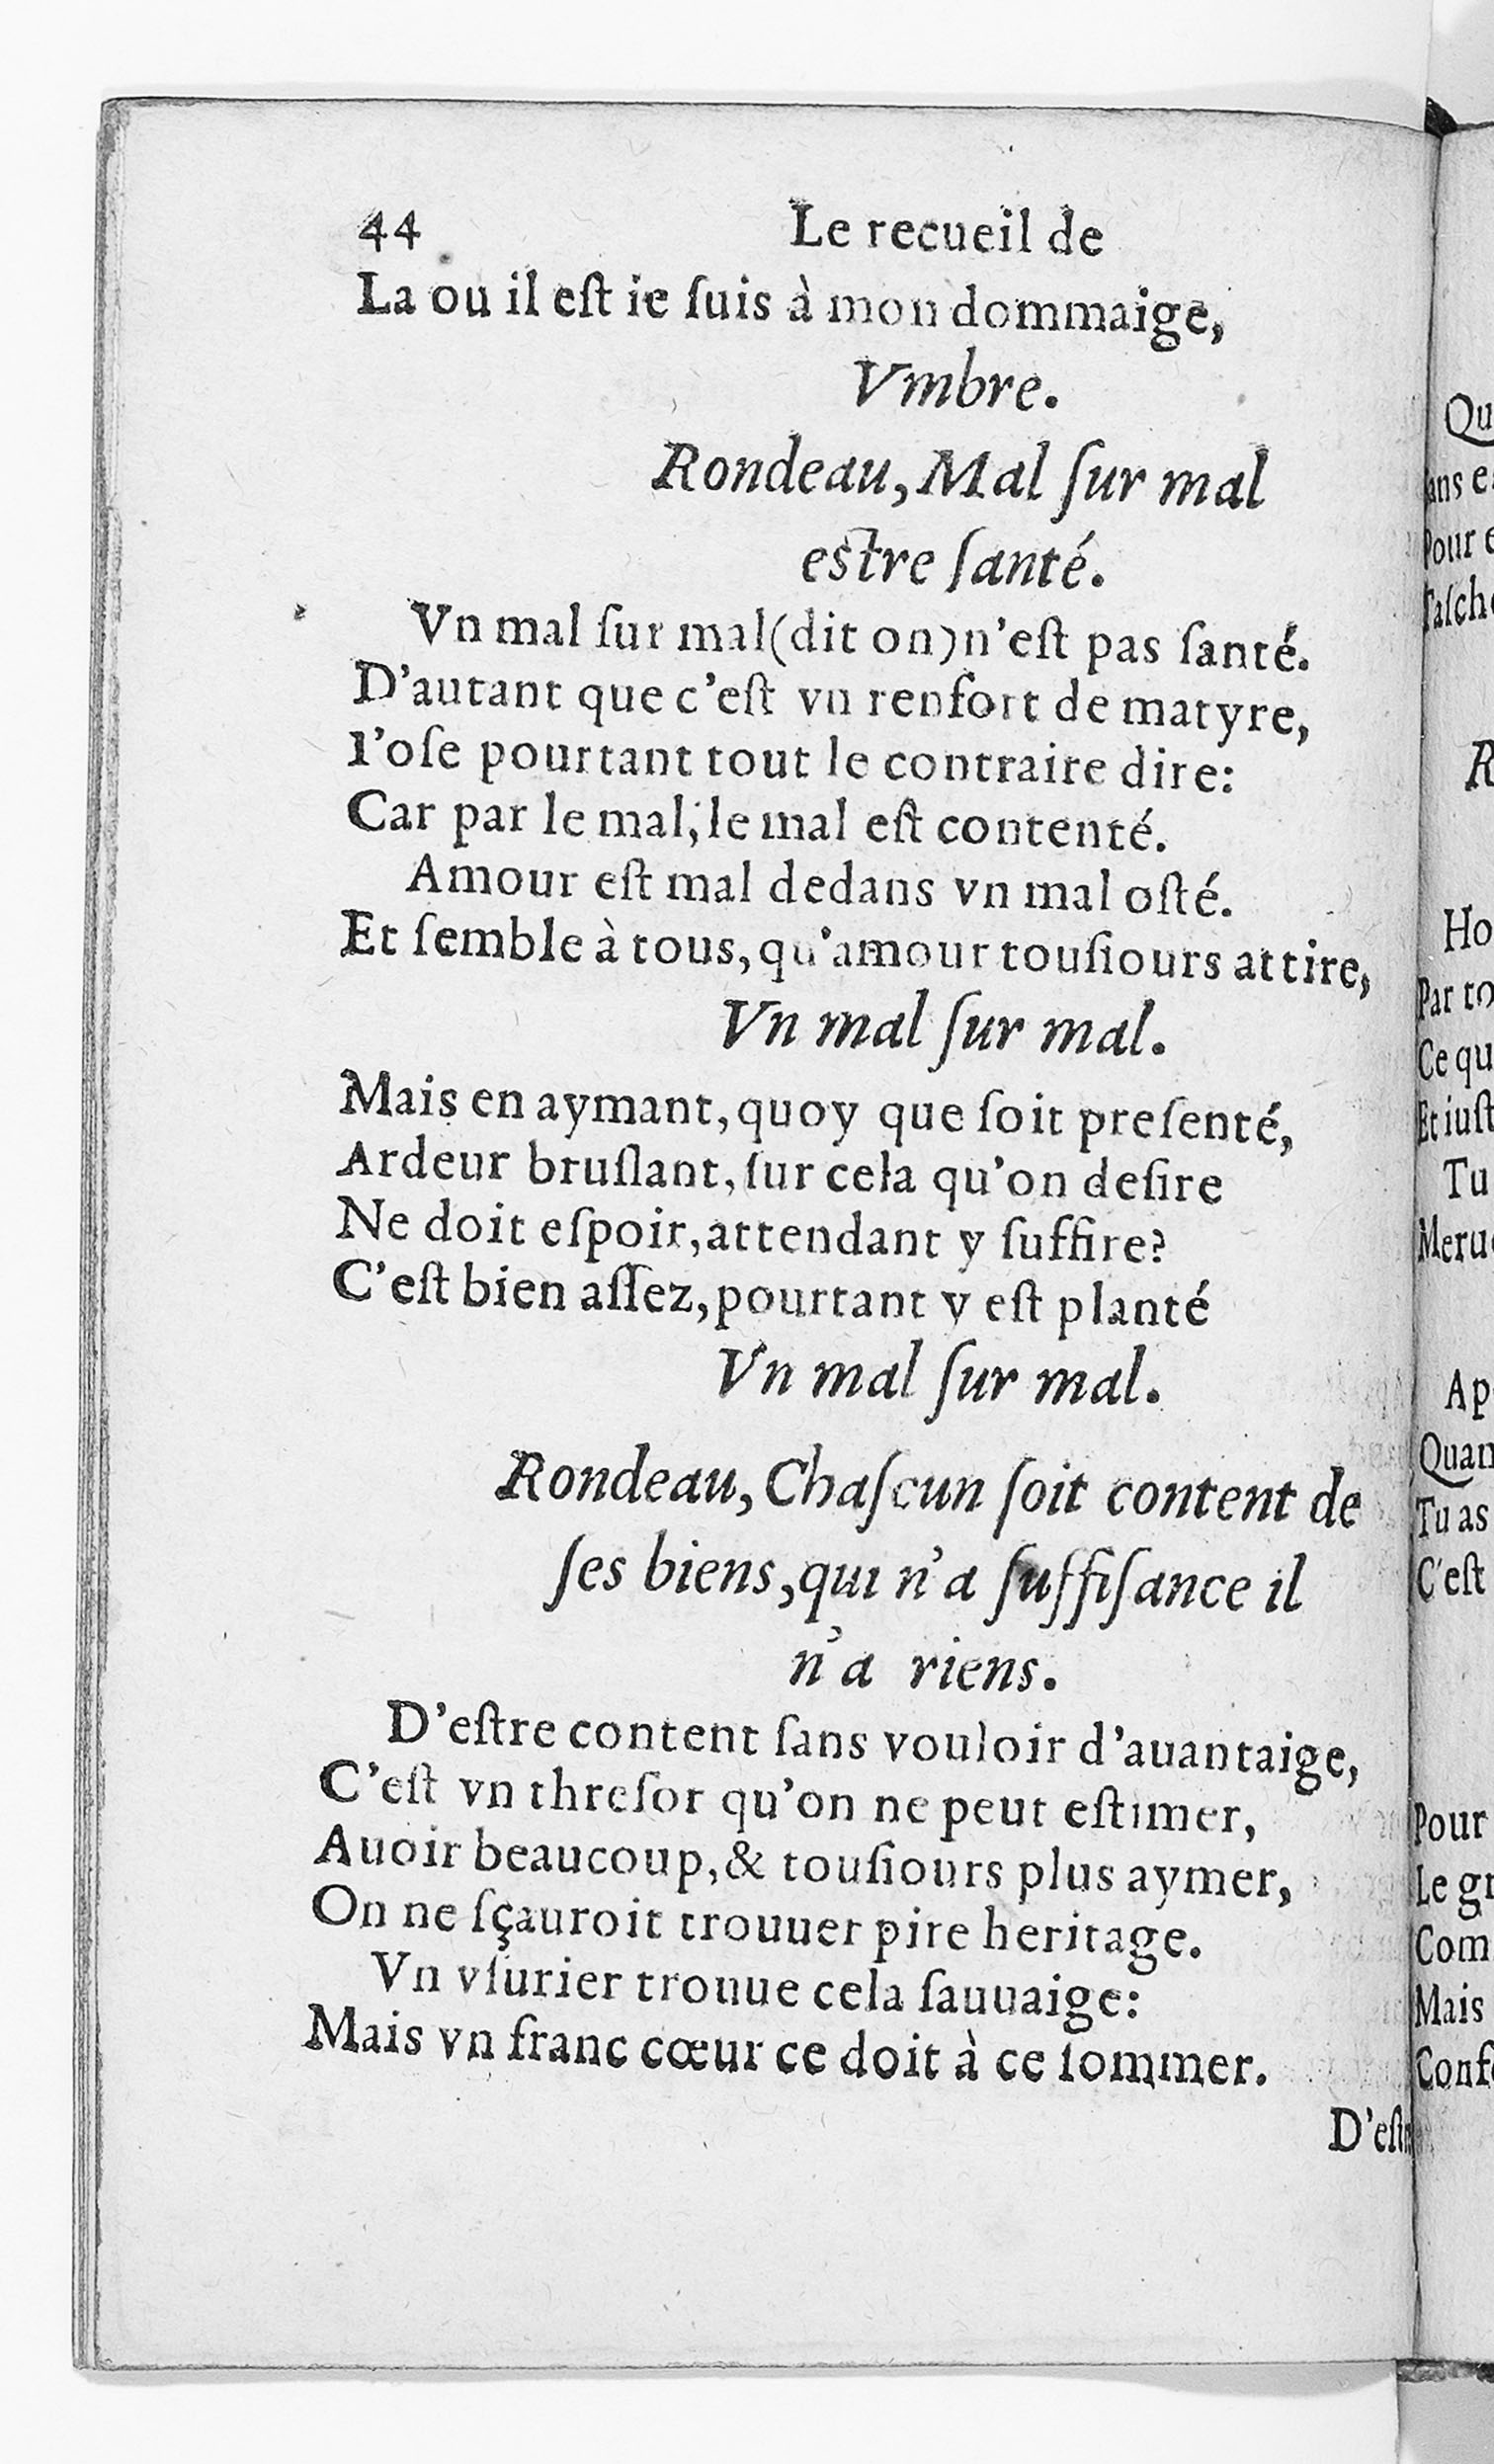 44 Le recueil de
La ou il eſt ie ſuis à mon dommaige,
Vmbre.
Rondeau, Mal ſur mal
eſtre ſanté.
Vn mal ſur mal (dit on) n'eſt pas ſanté.
D'autant que c'eſt vn renfort de matyre,
I'oſe pourtant tout le contraire dire:
Car par le mal, le mal eſt contenté.
Amour eſt mal dedans vn mal oſté.
Et ſemble à tous, qu'amour touſiours attire,
Vn mal ſur mal.
Mais en aymant, quoy que ſoit preſenté,
Ardeur bruſlant, ſur cela qu'on deſire
Ne doit eſpoir, attendant y ſuffire?
C'eſt bien aſſez, pourtant y eſt planté
Vn mal ſur mal.
Rondeau, Chaſcun ſoit content de
ſes biens, qui n'a ſuffiſance il
n'a riens.
D'eſtre content ſans vouloir d'auantaige,
C'eſt vn threſor qu'on ne peut eſtimer,
Auoir beaucoup, & touſiours plus aymer,
On ne ſçauroit trouuer pire heritage.
Vn vſurier trouue cela ſauuaige:
Mais vn franc cœur ce doit à ce ſommer.
D'eſtr
Qu
ans e
Pour e
Taſch
R
Ho
Par to
Ce qu
Et iuſt
Tu
Meru
Ap
Quan
Tu as
C'eſt
Pour
Le gr
Com
Mais
Conf